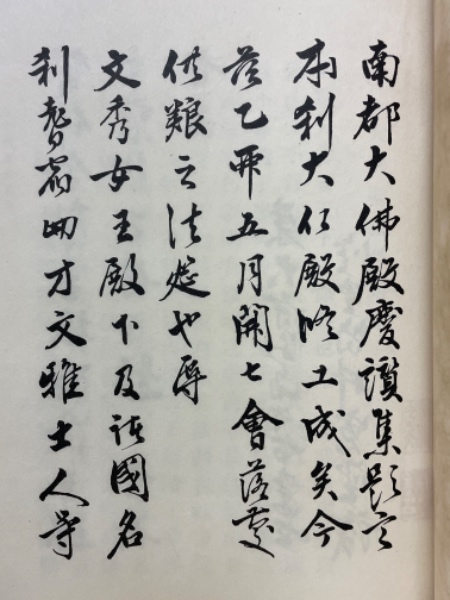 南都大佛殿慶讃集題言
本刹大仏殿修工成矣今
茲乙丣五月開七會落慶
供粮之法莚也辱
文秀女王殿下及諸國名
刹耆宿才文雅士人等